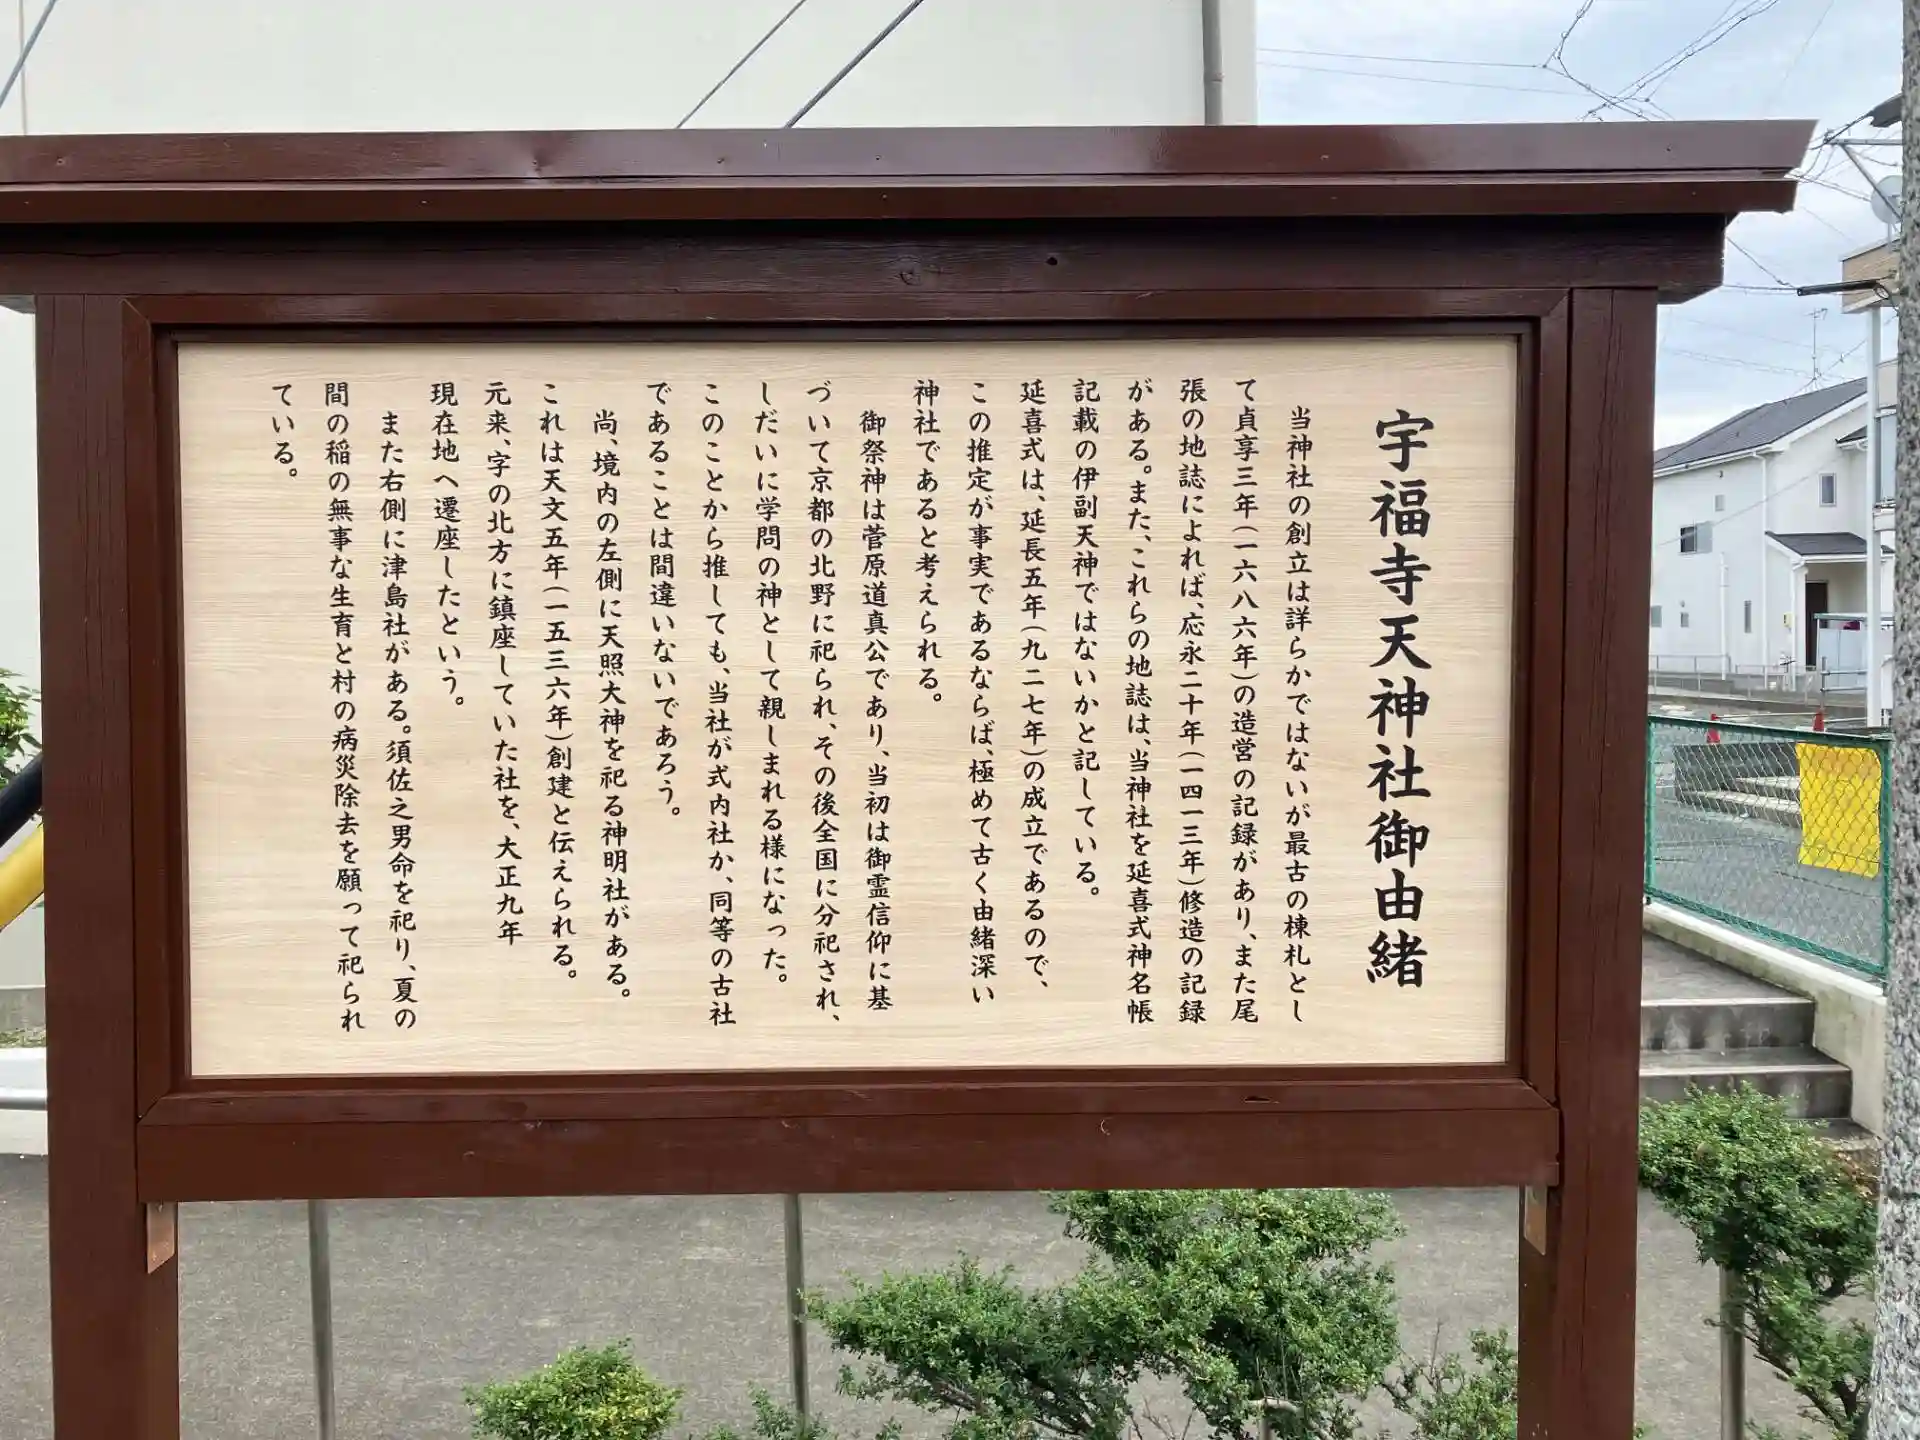 宇福寺天神社御由緒
当神社の創立は詳らかではないが最古の棟札とし
て貞享三年(一六八六年)の造営の記録があり、また尾
張の地誌によれば、応永二十年(一四一三年)修造の記録
がある。また、これらの地誌は、当神社を延喜式神名帳
記載の伊副天神ではないかと記している。
延喜式は、延長五年(九二七年)の成立であるので、
この推定が事実であるならば、極めて古く由緒深い
神社であると考えられる。
御祭神は菅原道真公であり、当初は御霊信仰に基
づいて京都の北野に祀られ、その後全国に分祀され、
しだいに学問の神として親しまれる様になった。
このことから推しても、当社が式内社か、同等の古社
であることは間違いないであろう。
尚、境内の左側に天照大神を祀る神明社がある。
これは天文五年(一五三六年)創建と伝えられる。
元来、字の北方に鎮座していた社を、大正九年
現在地へ遷座したという。
また右側に津島社がある。須佐之男命を祀り、夏の
間の稲の無事な生育と村の病災除去を願って祀られ
ている。